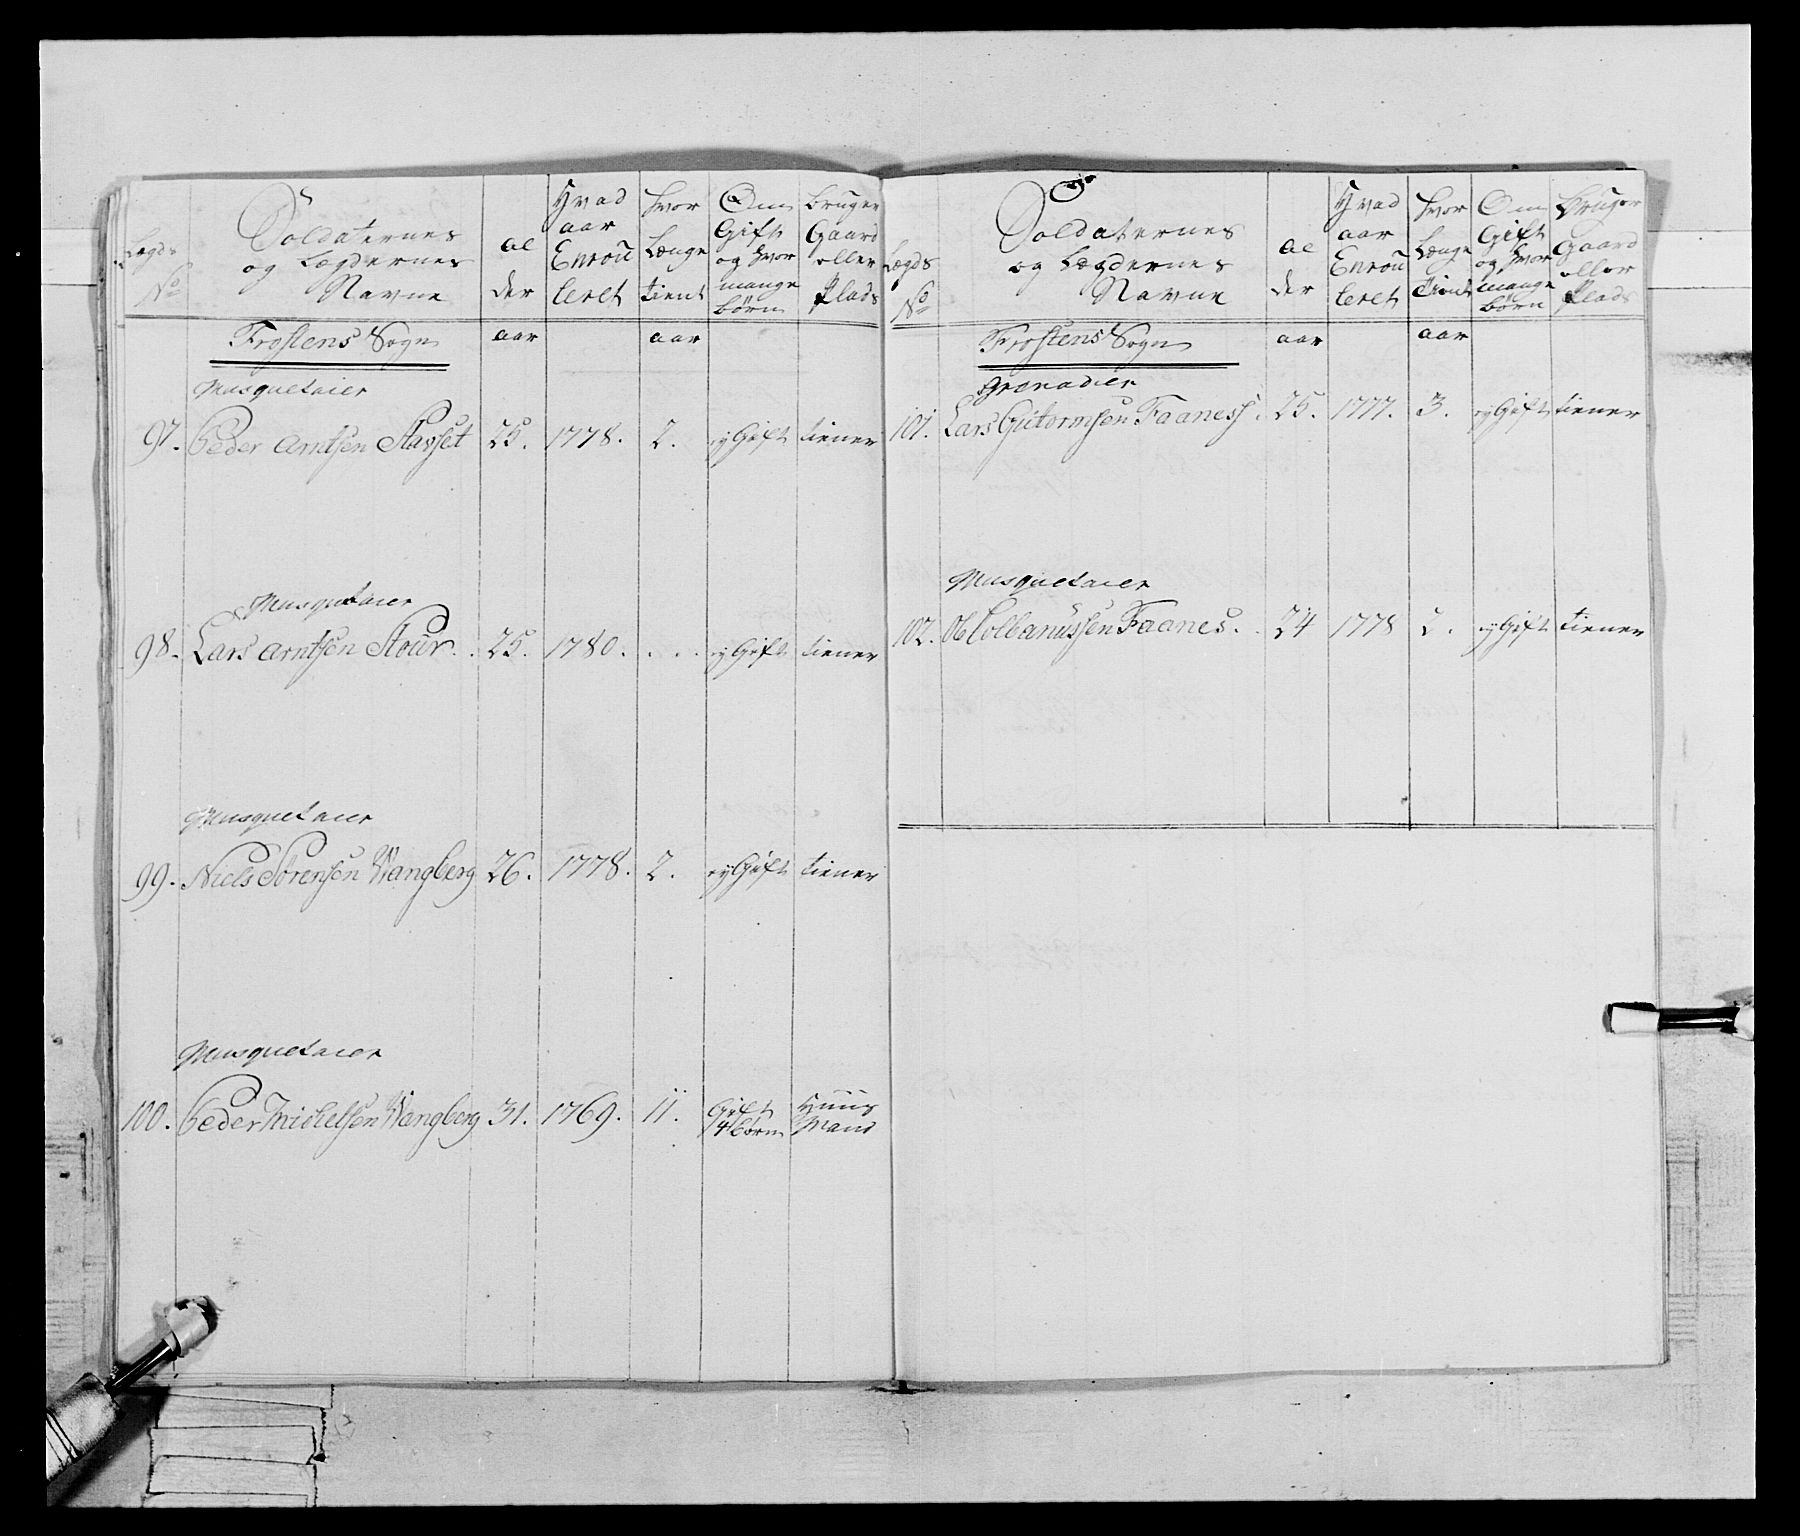 Lægds
No
Soldaternes
og Lægdernes
Navne
al
der
Hvad
aar
Enrou
leret
hvor
Længe
tient
Om
Gift
og hvor
mange
børn
bruger
Gaard
eller
Plads
Frostens Sogn
aar
aar
Musquetaier
97. Peder Arntsen Stavset 25. 1778. 2. ey Gift tiener
Musquetaier
98. Lars Arntsen Stour. . 25. 1780. . . . ey Gift tiener
Musquetaier
99. Niels Sørensen Wangberg 26. 1778. 2. ey Gift tiener
Musquetaier
100. Peder Michelsen Wangberg 31. 1769. 11. Gift 4 børn Huus Mand
Lægds
No
Soldaternes
og Lægdernes
Navne
al
der
Hvad
aar
Enrou
leret
hvor
Længe
tient
Om
Gift
og hvor
mange
børn
bruger
Gaard
eller
Plads
Frostens Sogn
aar
aar
Grenadier
101. Lars Gutormsen Faaness. 25. 1777. 3. ey Gift tiener
Musquetaier
102. Ole Collbanussen Faanes. . 24 1778 2. ey Gift tiener